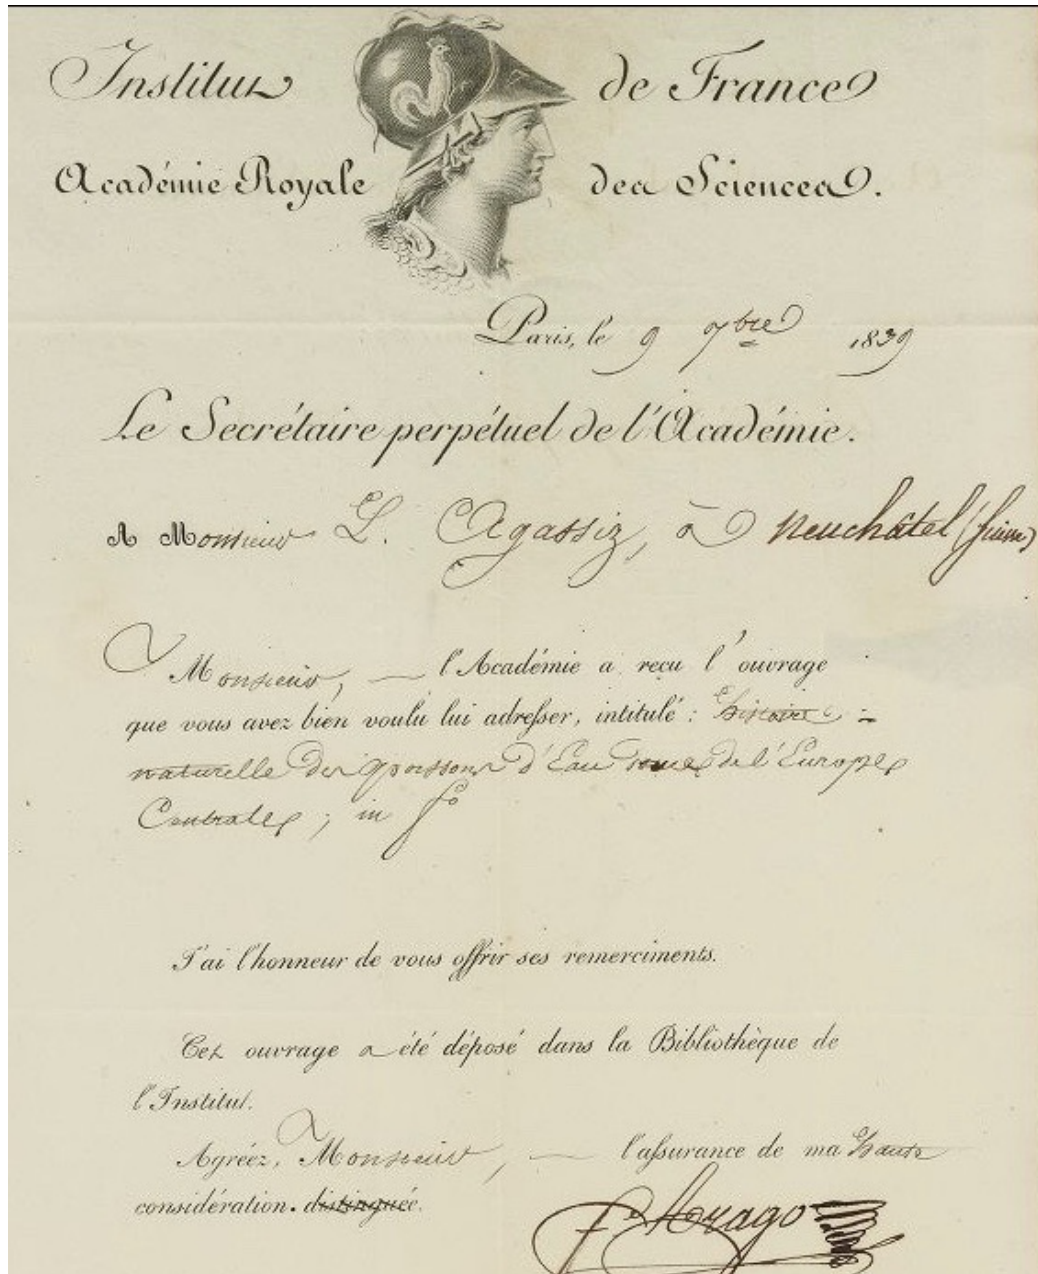 Institut de France
Académie Royale des Sciences.
Paris, le 9 7bre 1839
Le Secrétaire perpétuel de l'Académie.
A Monsieur L. Agassiz, à Neuchâtel (Suisse)
Monsieur, — l'Académie a reçu l'ouvrage
que vous avez bien voulu lui adresser, intitulé : histoire
naturelle des poissons d'Eau douce de l'Europe
Centrale ; in fo
J'ai l'honneur de vous offrir ses remercîments.
Cet ouvrage a été déposé dans la Bibliothèque de
l'Institut.
Agréez, Monsieur, — l'assurance de ma haute
considération. distinguée.
F. Arago